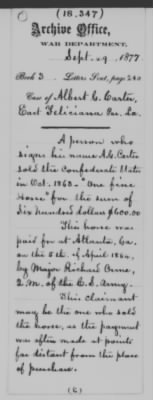 (18.347)
Archive Office,
WAR DEPARTMENT,
Sept. 29, 1877
Book 3 Letters Sent, page 240
Case of Albert C. Carter,
East Feliciana Par. La.
A person who
signs his name A. C. Carter
sold the Confederate States
in Oct. 1863 - "One fine
Horse" for the sum of
Six hundred dollars $600.00
This horse was
paid for at Atlanta, Ga.
on the 5th of April 1864,
by Major Richard Orme,
Q.M. of the C.S. Army.
This Claimant
may be the one who sold
the horse, as the payment
was often made at points
far distant from the place
of purchase.
(6)